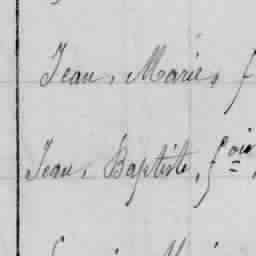 Jean, Marie, f
Jean, Baptiste, fois